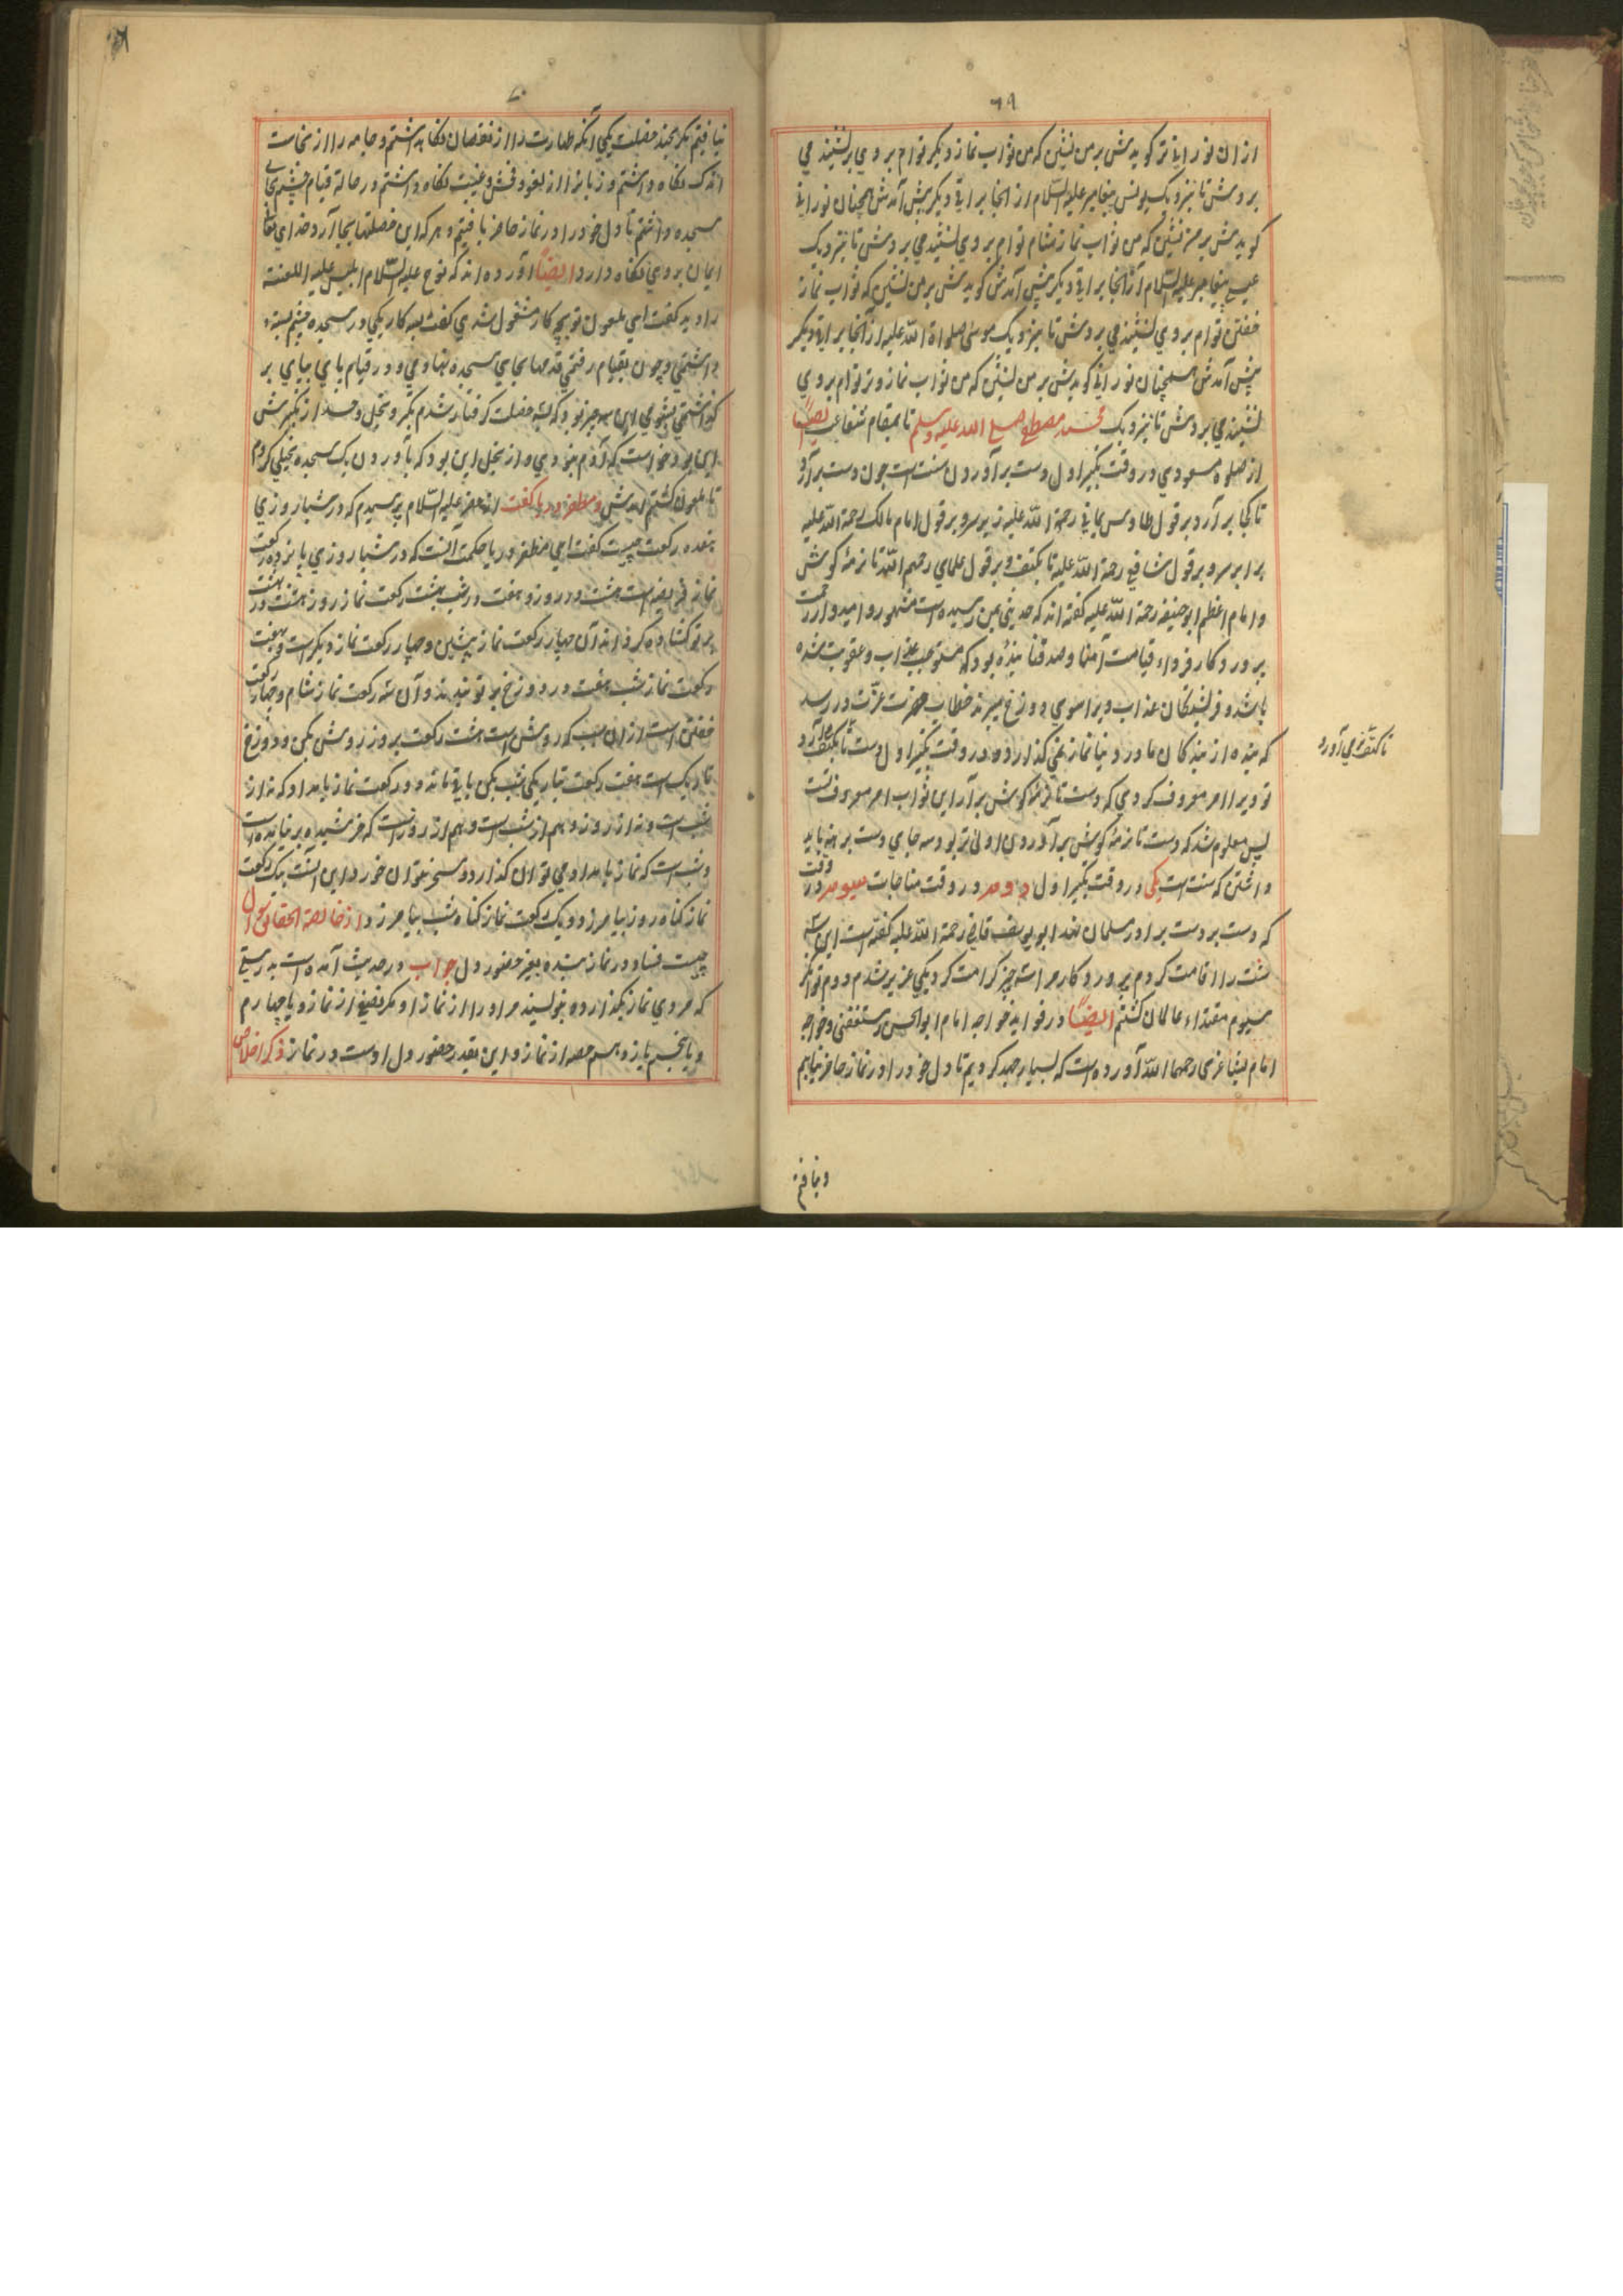 ۶۹
ازان نورانی‌تر گویدش بر من نشین که من ثواب نماز دیگر توام بر وی بر نشیند می
بردش تا نزدیک یونس پیغامبر علیه السلام از انجا براقی دیگر پیش آمدش همچنان نورانی
گویدش بر من نشین که من ثواب نماز شام توام بر وی نشیند می بردش تا نزدیک
عیسی پیغامبر علیه السلام از آنجا براقی دیگر پیش آمدش گویدش بر من نشین که ثواب نماز
خفتن توام بر وی نشیند می بردش تا نزدیک موسی صلواة الله علیه از آنجا براقی دیگر
پیش آمدش همچنان نورانی گویدش بر من نشین که من ثواب نماز وتر توام بر وی
نشیند می بردش تا نزدیک محمد مصطفی صلی الله علیه وسلم تا بمقام شفاعت ایضًا
از صلوة مسعودی در وقت تکبیر اول دست برآوردن سنت است چون دست برآرد
تا کجا برآرد بر قول طاوس یمانی رحمة الله علیه زبر سر و بر قول امام مالک رحمة الله علیه
برابر سر و بر قول شافعی رحمة الله علیه تا بکتف و بر قول علمای رحمهم الله تا نرمهٔ گوش
و امام اعظم ابو حنیفه رحمة الله علیه گفته اند که حدیثی بمن رسیده است مشهور و امیدوار رحمت
پروردگار فرداء قیامت آمنا و صدقنا بندهٔ بود که مستوجب عذاب و عقوبت شده
باشد و فرشتگان عذاب ویرا سوی دوزخ میبرند خطاب حضرت عزت در رسد
که بنده از بندکان ما در دنیا نماز می گذارد و در وقت تکبیر اول دست تا بکتف می آرد
تو ویرا امر معروف کردی که دست تا نرمهٔ گوش برآر این ثواب امر معروف تست
پس معلوم شد که دست تا نرمهٔ گوش برآوردی اولی‌تر بود سه جای دست برهنه باید
داشتن که سنت است یکی در وقت تکبیر اول دوم در وقت مناجات سیوم در وقت
که دست بر دست برادر مسلمان نهد ابو یوسف قاضی رحمة الله علیه گفته است این سه
سنت را اقامت کردم پروردگار مرا سه چیز کرامت کرد یکی عزیز شدم دوم توانگر
سیوم مقتداء عالمان گشتم ایضًا در فواید خواجه امام ابو الحسن رستغفنی و خواجه
امام رحمهما الله آورده است که بسیار جهد کردیم تا دل خود را در نماز حاضر نیابیم
تا کتف می آورد
و نیافتم
۷۰
نیافتیم مگر بچند خصلت یکی آنکه طهارت را از نقصان نگاه داشتم و جامه را از نجاست
اندک نگاه داشتم و زبانرا از لغو و فحش و غیبت نگاه داشتم و در حالة قیام چشم بجای
سجده داشتم تا دل خود را در نماز حاضر یافتیم و هر که این خصلتها بجا آرد خدای تعالی
ایمان بر وی نگاه دارد ایضًا آورده اند که نوح علیه السلام ابلیس علیه اللعنة
را دید گفت ای ملعون تو بچه کار مشغول شدی گفت بسه کار یکی در سجده چشم بسته
داشتمی و چون بقیام رفتمی قدمها بجای سجده نهادمی و در قیام پای بپای بر
گذاشتمی بشومی این سه چیز بود که بسه خصلت گرفتار شدم بکبر و بخل و حسد از کبر سرش
این بود خواست که آدم بودی و از بخل این بود که بآوردن یک سجده بخیلی کردم
تا ملعون گشتم و مظفر دریا گفت از خضر علیه السلام پرسیدم که در شبار وزی
هفده رکعت چیست گفت ای مظفر دریا حکمت آنست که در شبار وزی پانزده رکعت
نماز فریضه است هشت در روز و هفت در شب هشت رکعت نماز روز هشت در بهشت
بر تو گشاده گرداند آن چهار رکعت نماز پیشین و چهار رکعت نماز دیگر است و هفت
رکعت نماز شب هفت در دوزخ بر تو بندند و آن سه رکعت نماز شام و چهار رکعت
خفتن است از آن سبب که روشن است هشت رکعت بروز روشن بکن و دوزخ
تاریک است هفت رکعت بتاریکی شب بکن باقی ماند دو رکعت نماز بامداد که نه از
شب است و نه از روز و هم از شب است و هم از روز است که خرشید بر نیامده است
و شب است که نماز بامداد می توان گذارد و سحر نتوان خورد این است یک رکعت
نماز گناه روز بیامرزد و یک رکعت نماز گناه شب بیامرزد از خالصة الحقائق سوال
چیست فساد در نماز بنده بغیر حضور دل جواب در حدیث آمده است بدرستی
که مردی نماز بگذارد و ننویسند مر او را از نماز او مگر نصفی از نماز و یا چهارم
و یا پنجم یا دهم حصه از نماز و این بقدر حضور دل اوست در نماز ذکر اخلاص